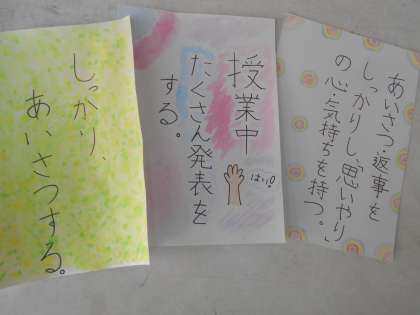 しっかり、
あいさつする。
授業中
たくさん発表を
する。
はい!
あいさつ・返事を
しっかりし、「思いやり
の心・気持ちを持つ。」